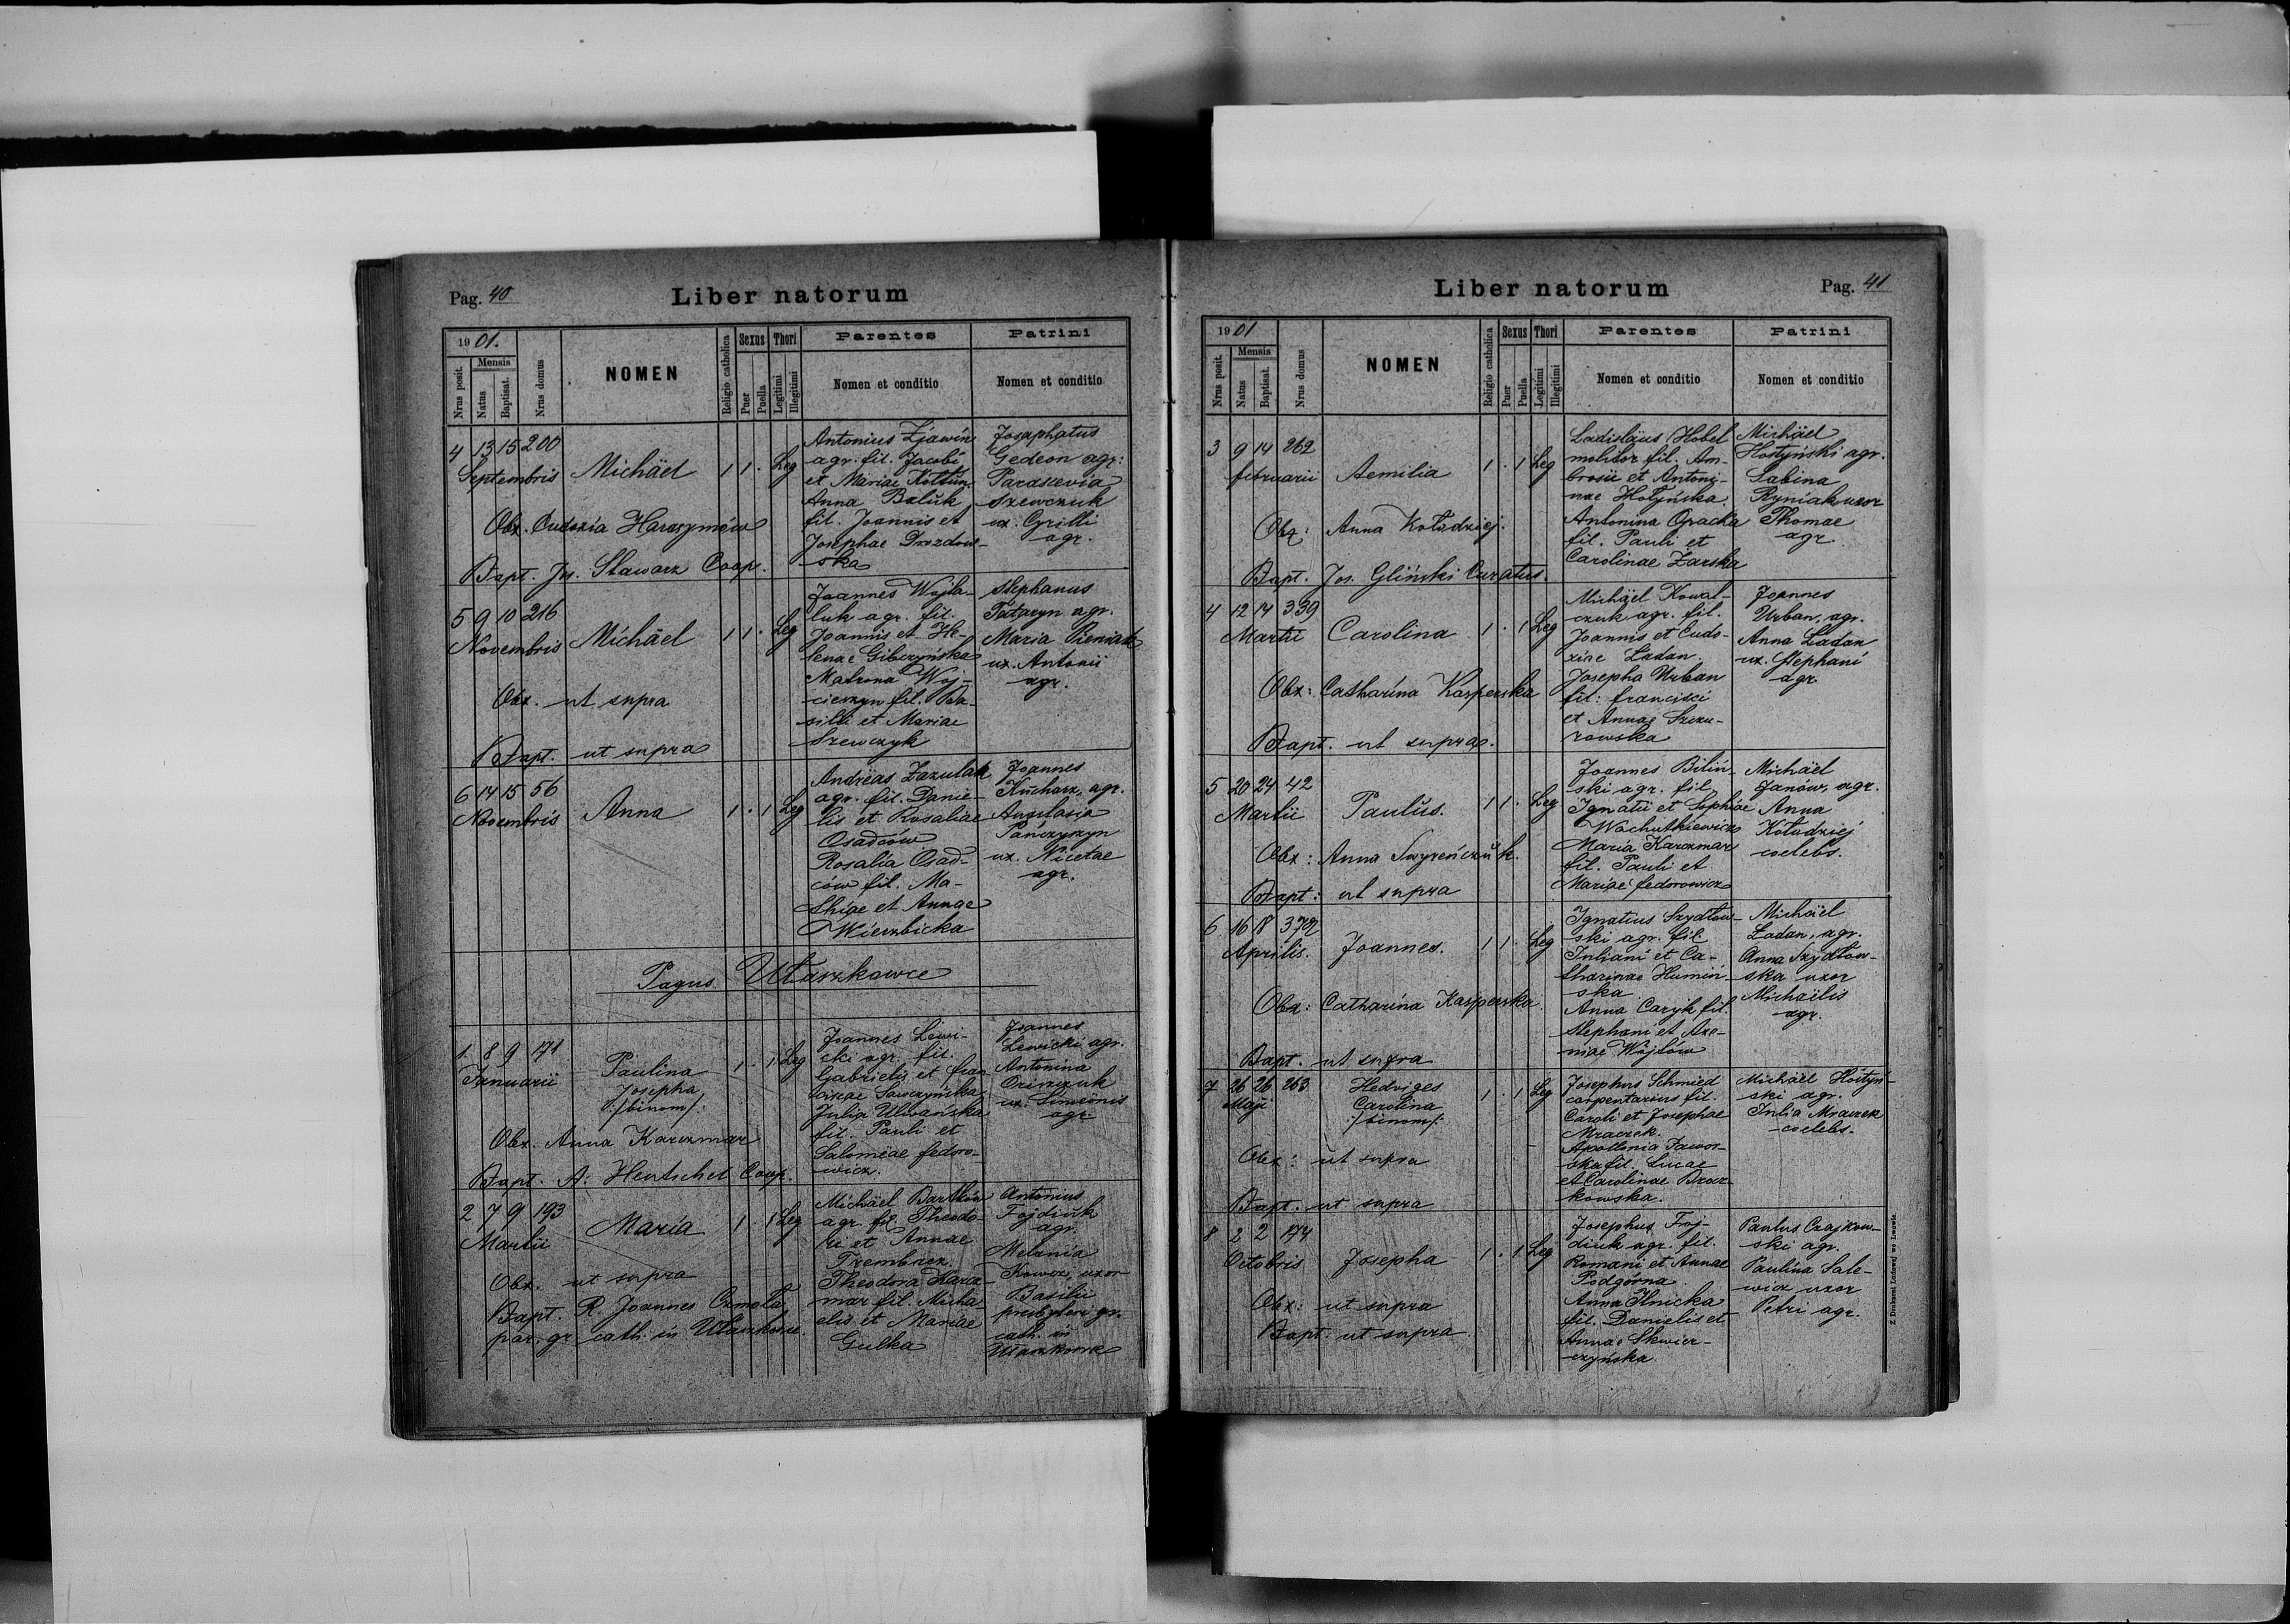 Pag. 40
Liber natorum
1901.
Nrus posit.
Mensis
Natus
Baptisat.
Nrus domus
NOMEN
Religio catholica
Sexus
Puer
Puella
Thori
Legitimi
Illegitimi
Parentes
Nomen et conditio
Patrini
Nomen et conditio
4 13 15 200
Septembris
Michäel
1 1 . Leg
Antonius Zjawin
agr. fil. Jacobi
et Mariae Kołtun
Anna Baluk
fil. Joannis et
Josephae Drozdow-
ska
Josaphatus
Gedeon agr:
Parascevia
Szewczuk
ux. Cyrilli
agr.
Obx. Eudoxia Harasymów
Bapt. Jos. Stawarz Coop.
5 9 10 216
Novembris
Michäel
1 1 . Leg
Joannes Wojta-
luk agr. fil.
Joannis et He-
lenae Gibczyńska
Matrona Woj-
cieszyn fil. Ba-
silii et Mariae
Szewczyk
Stephanus
Tataryn agr.
Maria Pieniak
ux. Antonii
agr.
Obx. ut supra
Bapt. ut supra
6 14 15 56
Novembris
Anna
1 . 1 Leg
Andreas Zazulak
agr. fil. Danie-
lis et Rosaliae
Osadców
Rosalia Osad-
ców fil. Ma-
thiae et Annae
Wierzbicka
Joannes
Kucharz, agr.
Anastasia
Pańczyszyn
ux. Nicetae
agr.
Pagus Ułaszkowce
1. 8 9 171
Januarii
Paulina
Josepha
/:binom/:
1 . 1 Leg
Joannes Lewi-
cki agr. fil.
Gabrielis et Fran-
ciscae Sawczyńska
Julia Ulwańska
fil. Pauli et
Salomeae Fedoro-
wicz.
Joannes
Lewicki agr.
Antonina
ux. Simeonis
agr
Obx. Anna Karczmar
Bapt. A. Hentschel Coop.
2 7 9 193
Martii
Maria
1 . 1 Leg
Michäel Bartków
agr. fil. Theodo-
ri et Annae
Trembicz.
Theodora Karcz-
mar fil. Micha-
elis et Mariae
Gulka
Antonius
Fojdiuk
agr.
Melania
Kowcz, uxor
Basilii
presbyteri gr.
cath. in
Ułaszkowce
Obx. ut supra
Bapt. R. Joannes Czmoła
par. gr. cath. in Ułaszkowce.
Liber natorum
Pag. 41
1901
Nrus posit.
Mensis
Natus
Baptisat.
Nrus domus
NOMEN
Religio catholica
Sexus
Puer
Puella
Thori
Legitimi
Illegitimi
Parentes
Nomen et conditio
Patrini
Nomen et conditio
3 9 14 262
februarii
Aemilia
1 . 1 Leg
Ladisläus Hobel
molitor fil. Am-
brosii et Antoni-
nae Hotyńska
Antonina Opacka
fil. Pauli et
Carolinae Zarska
Michäel
Hostyński agr.
Sabina
Ryniak uxor
Thomae
agr.
Obx: Anna Kołodziej.
Bapt. Jos. Gliński Curatus.
4 12 14 339
Martii
Carolina
1 . 1 Leg
Michäel Kowal-
czuk agr. fil.
Joannis et Eudo-
xiae Ładan.
Josepha Urban
fil: francisci
et Annae Szczu-
rowska
Joannes
Urban, agr.
Anna Ładan
ux. Stephani
agr.
Obx: Catharina Kasperska
Bapt. ut supra.
5 20 24 42
Martii
Paulus.
1 1 . Leg
Joannes Biliń-
ski agr. fil.
Ignatii et Sophiae
Wachutkiewicz
Maria Karczmar
fil. Pauli et
Mariae fedorowicz
Michäel
Janów, agr.
Anna
Kołodziej
coelebs.
Obx: Anna Swyreńczuk.
Bapt: ut supra
6 16 18 372
Aprilis.
Joannes.
1 1 . Leg
Ignatius Szydłow-
ski agr. fil.
Juliani et Ca-
tharinae Humiń-
ska
Anna Caryk fil.
Stephani et Axe-
niae Wojtów
Michäel
Ładan, agr.
Anna Szydłow-
ska uxor
Michäelis
agr.
Obx: Catharina Kasperska.
Bapt. ut supra
7 26 26 263
Maji
Hedviges
Carolina
/binom/.
1 . 1 Leg
Josephus Schmied
carpentarius fil.
Caroli et Josephae
Mraczek.
Apollonia Jawor-
ska fil. Lucae
et Carolinae Brzez-
kowska.
Michäel Hostyń-
ski agr.
Julia Mraczek
coelebs.
Obx: ut supra
Bapt. ut supra
8 2 2 174
Octobris
Josepha
1 . 1 Leg
Josephus Foj-
diuk agr. fil.
Romani et Annae
Podgórna.
Anna Ilnicka
fil. Danielis et
Annae Skwier-
czyńska
Paulus Czajkow-
ski agr.
Paulina Sale-
wicz uxor
Petri agr.
Obx: ut supra
Bapt. ut supra
Z Drukarni Ludowej we Lwowie.